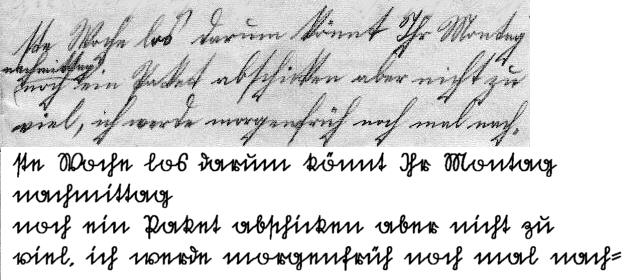 ste Woche los darum könnt Ihr Montag
nachmittag
noch ein Paket abschicken aber nicht zu
viel, ich werde morgenfrüh noch mal nach-
ste Woche los darum könnt Ihr Montag
nachmittag
noch ein Paket abschicken aber nicht zu
viel, ich werde morgenfrüh noch mal nach=